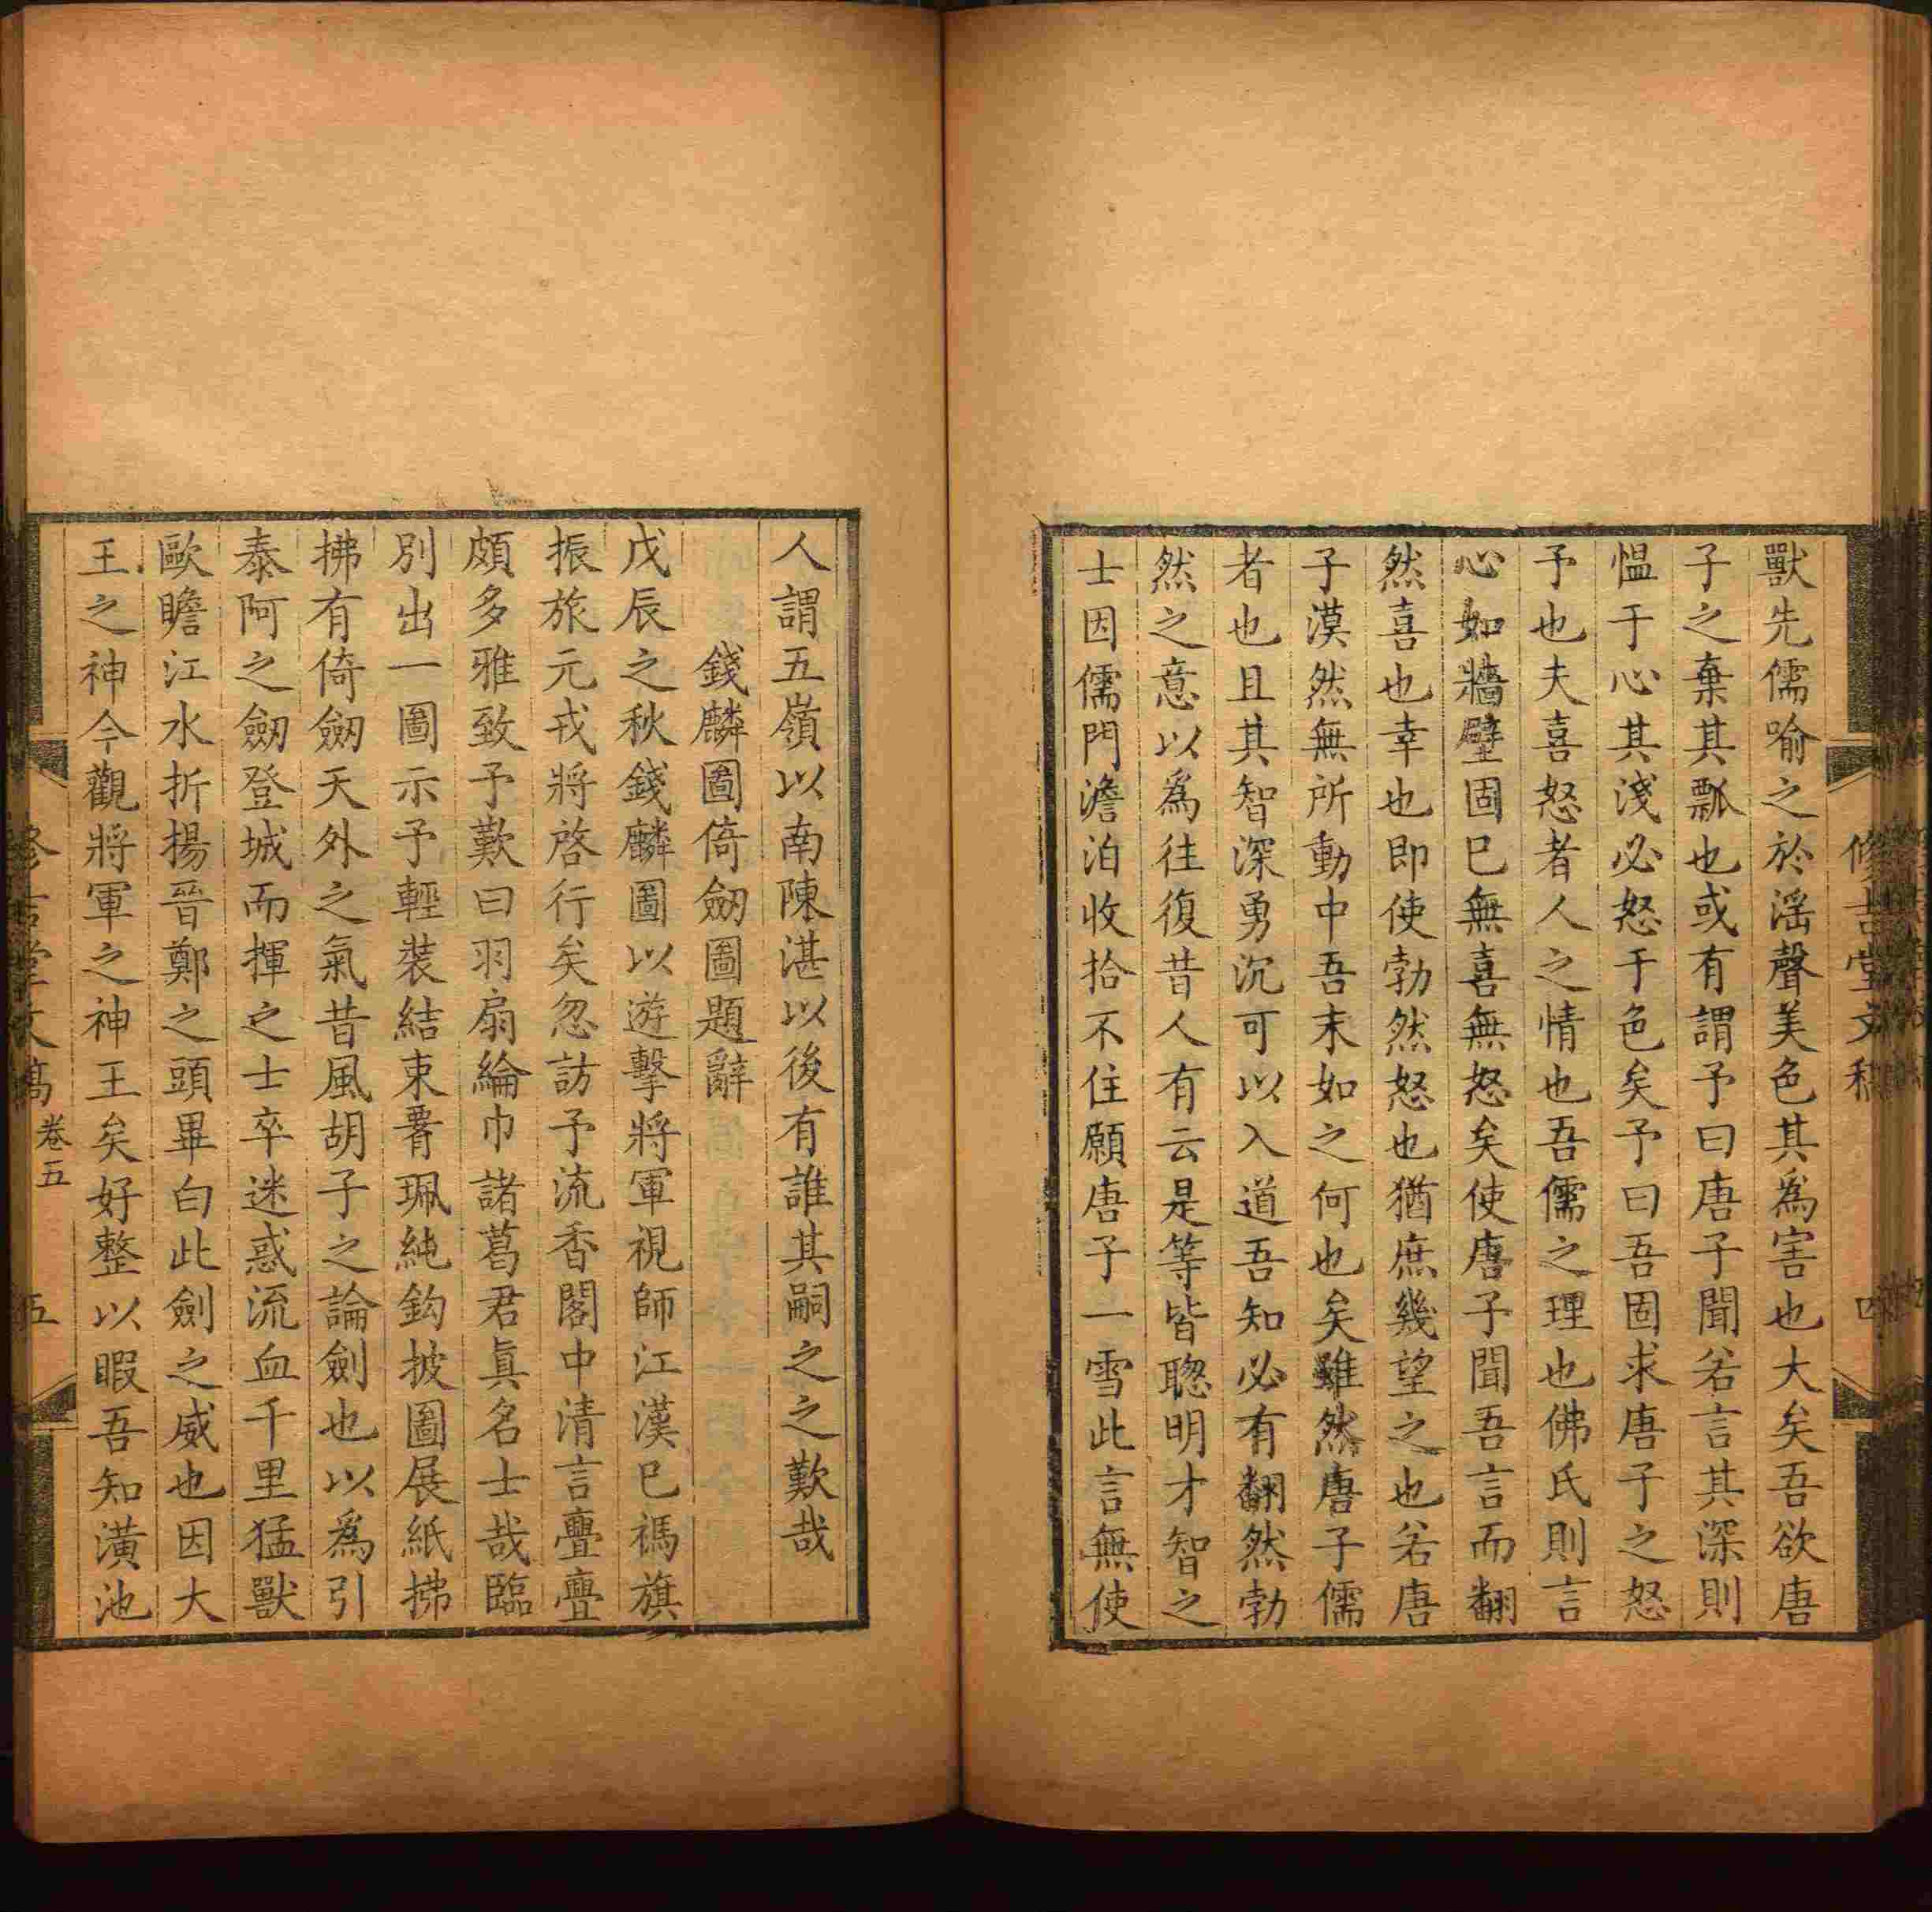 修吉堂文稿
四
獸先儒喻之於滛聲美色其為害也大矣吾欲唐
子之棄其瓢也或有謂予曰唐子聞若言其深則
愠于心其淺必怒于色矣予曰吾固求唐子之怒
予也夫喜怒者人之情也吾儒之理也佛氏則言
心如牆壁固巳無喜無怒矣使唐子聞吾言而翻
然喜也幸也即使勃然怒也猶庶幾望之也若唐
子漠然無所動中吾末如之何也矣雖然唐子儒
者也且其智深勇沉可以入道吾知必有翻然勃
然之意以為往復昔人有云是等皆聰明才智之
士因儒門澹泊收拾不住願唐子一雪此言無使
人謂五嶺以南陳湛以後有誰其嗣之之歎哉
錢麟圖倚劒圖題辭
戊辰之秋錢麟圖以遊擊將軍視師江漢巳禡旗
振旅元戎將啓行矣忽訪予流香閣中清言亹亹
頗多雅致予歎曰羽扇綸巾諸葛君真名士哉臨
別出一圖示予輕裝結束膋珮純鈎披圖展紙拂
拂有倚劒天外之氣昔風胡子之論劍也以為引
泰阿之劒登城而揮之士卒迷惑流血千里猛獸
歐瞻江水折揚晉鄭之頭畢白此劍之威也因大
王之神今觀將軍之神王矣好整以暇吾知潢池
修吉堂文稿
卷五
五